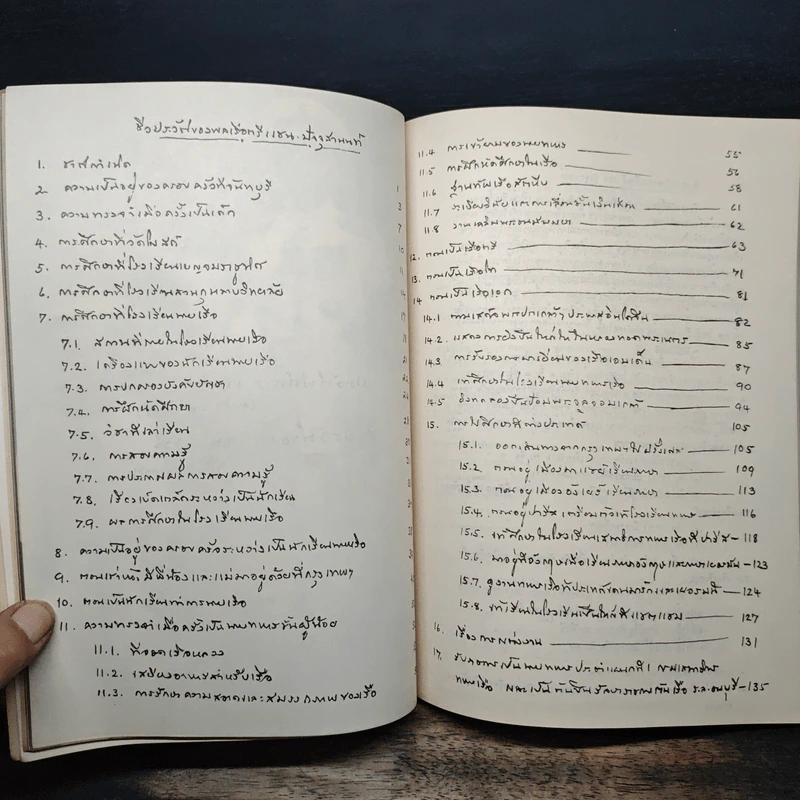 ชีวประวัติของพลเรือตรีแชน ปัจจุสานนท์
1. ชาติกำเนิด
2. ความเป็นอยู่ของครอบครัวที่จันทบุรี 1
3. ความทรงจำเมื่อครั้งเป็นเด็ก 3
4. การศึกษาที่วัดใน 7
5. การศึกษาที่โรงเรียนเบญจมราชูทิศ 10
6. การศึกษาที่โรงเรียนสวนกุหลาบวิทยาลัย 11
7. การศึกษาที่โรงเรียนนายเรือ
7.1. สถานที่ภายในโรงเรียนนายเรือ
7.2. เครื่องแบบของนักเรียนนายเรือ
7.3. การปกครองบังคับบัญชา
7.4. การฝึกหัดศึกษา
7.5. วิชาที่เล่าเรียน
7.6. การสอบความรู้
7.7. การประกาศผลการสอบความรู้
7.8. เรื่องเบ็ดเตล็ดระหว่างเป็นนักเรียน
7.9. ผลการศึกษาในโรงเรียนนายเรือ
8. ความเป็นอยู่ของครอบครัวระหว่างเป็นนักเรียนนายเรือ
9. ตอนเก่าพี่น้องและแม่มาอยู่ด้วยที่กรุงเทพฯ
10. ตอนเป็นนักเรียนทำการนายเรือ
11. ความทรงจำเมื่อครั้งเป็นนายทหารชั้นผู้น้อย
11.1. ที่จอดเรือหลวง
11.2. เสบียงอาหารสำหรับเรือ
11.3. การรักษาความสะอาดและสมรรถภาพของเรือ
11.4 การเข้ายามของนายทหาร 55
11.5 การฝึกหัดศึกษาในเรือ 56
11.6 ฐานทัพเรือสัตหีบ 58
11.7 ระเบียบวินัยและการเลื่อนชั้นเงินเดือน 61
11.8 งานเฉลิมพระชนม์พรรษา 62
12. ตอนเป็นเรือตรี 63
13. ตอนเป็นเรือโท 71
14. ตอนเป็นเรือเอก 81
14.1 ตามเสด็จพระปกเกล้าฯ ประพาสอินโดจีน 82
14.2. แสดงการยิงปืนใหญ่ในหน้าทอดพระเนตร 85
14.3 การรับรองทหารเรือของเรือเอมเด็น 87
14.4 เข้าศึกษาในโรงเรียนนายทหารเรือ 90
14.5 ยิงทดลองปืนป้อมพระจุลจอมเกล้า 94
15. การไปศึกษาที่ต่างประเทศ 105
15.1. ออกเดินทางจากกรุงเทพฯ ไปฝรั่งเศส 105
15.2. ตอนอยู่เมืองเรียนภาษา 109
15.3. ตอนอยู่เมืองอังเยร์เรียนภาษา 113
15.4. ตอนอยู่ปารีสเตรียมตัวเข้าโรงเรียนนายทหาร 116
15.5. เข้าศึกษาในโรงเรียนเสนาธิการทหารเรือที่ปารีส - 118
15.6. มาอยู่ที่อังกฤษเพื่อเรียนภาษาอังกฤษและภาษาเยอรมัน - 123
15.7. ดูงานทหารเรือที่ประเทศเดนมาร์กและเยอรมนี - 124
15.8. เข้าเรียนในโรงเรียนปืนใหญ่ที่แชตแฮม 127
16. เรื่องการแต่งงาน 131
17. รับราชการเป็นนายทหารประจำแผนกที่ 1 กรมเสนาธิการ
ทหารเรือ และเป็นต้นปืนรักษาราชการต้นเรือ ร.ล.ธนบุรี - 135